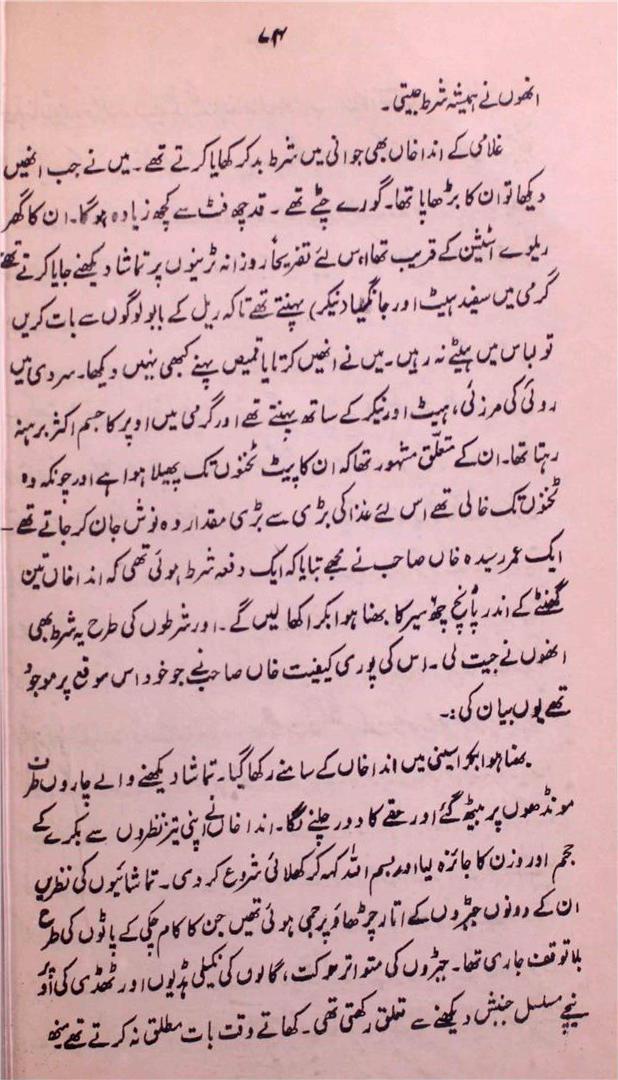 ۷۴
انھوں نے ہمیشہ شرط جیتی۔
غلامی کے انداخاں بھی جوانی میں شرط بد کر کھایا کرتے تھے۔ میں نے جب انھیں
دیکھا تو ان کا بڑھاپا تھا۔ گورے چٹے تھے۔ قد چھ فٹ سے کچھ زیادہ ہوگا۔ ان کا گھر
ریلوے اسٹیشن کے قریب تھا اس لئے تفریحاً روزانہ ٹرینوں پر تماشا دیکھنے جایا کرتے تھے
گرمی میں سفید ہیٹ اور جانگھیا (نیکر) پہنتے تھے تاکہ ریل کے بابو لوگوں سے بات کریں
تو لباس میں ہیٹے نہ رہیں۔ میں نے انھیں کرتا یا قمیص پہنے کبھی نہیں دیکھا۔ سردی میں
روئی کی مرزئی، ہیٹ اور نیکر کے ساتھ پہنتے تھے اور گرمی میں اوپر کا جسم اکثر برہنہ
رہتا تھا۔ ان کے متعلّق مشہور تھا کہ ان کا پیٹ ٹخنوں تک پھیلا ہوا ہے اور چونکہ وہ
ٹخنوں تک خالی تھے اس لئے غذا کی بڑی سے بڑی مقدار وہ نوش جان کر جاتے تھے۔
ایک عمر رسیدہ خاں صاحب نے مجھے بتایا کہ ایک دفعہ شرط ہوئی تھی کہ انداخاں تین
گھنٹے کے اندر پانچ چھ سیر کا بھنا ہوا بکرا کھا لیں گے۔ اور شرطوں کی طرح یہ شرط بھی
انھوں نے جیت لی۔ اس کی پوری کیفیت خاں صاحب نے جو خود اس موقع پر موجود
تھے یوں بیان کی:۔
بھنا ہوا بکرا سینی میں انداخاں کے سامنے رکھا گیا۔ تماشا دیکھنے والے چاروں طرف
مونڈھوں پر بیٹھ گئے اور حقے کا دور چلنے لگا۔ انداخاں نے اپنی تیز نظروں سے بکرے کے
حجم اور وزن کا جائزہ لیا اور بسم اللہ کہہ کر کھلائی شروع کر دی۔ تماشائیوں کی نظریں
ان کے دونوں جبڑوں کے اتار چڑھاؤ پر جمی ہوئی تھیں جن کا کام چکی کے پاٹوں کی طرح
بلا توقف جاری تھا۔ جبڑوں کی متواتر حرکت، گالوں کی نکیلی ہڈیوں اور ٹھڈی کی اوپر
نیچے مسلسل جنبش دیکھنے سے تعلق رکھتی تھی۔ کھاتے وقت بات مطلق نہ کرتے تھے منھ